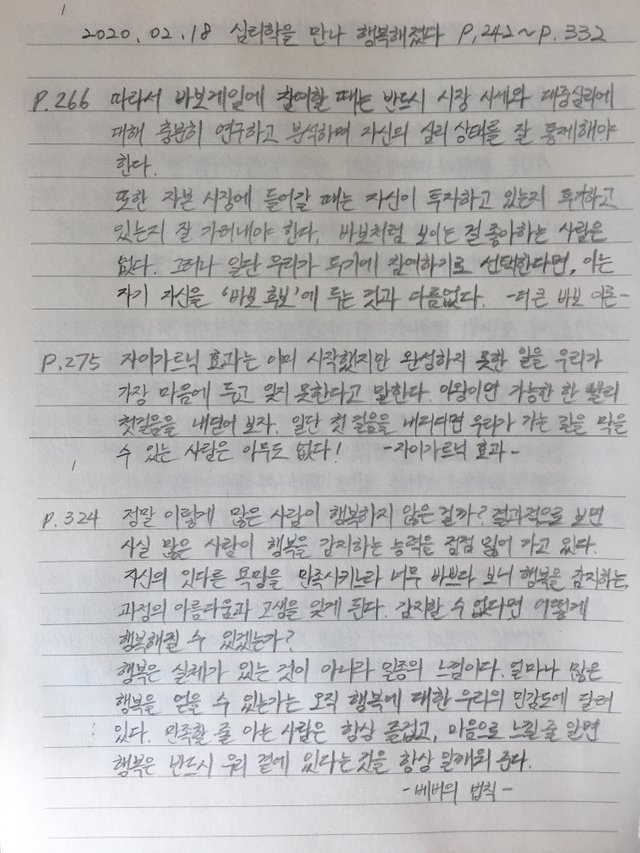 2020.02.18 심리학을 만나 행복해졌다 P,242~P.332
P.266 따라서 바보게임에 참여할 때는 반드시 시장 시세와 대중심리에
대해 충분히 연구하고 분석하며 자신의 심리 상태를 잘 통제해야
한다.
또한 자본 시장에 들어갈 때는 자신이 투자하고 있는지 투기하고
있는지 잘 가려내야 한다. 바보처럼 보이는 걸 좋아하는 사람은
없다. 그러나 일단 우리가 투기에 참여하기로 선택한다면, 이는
자기 자신을 '바보 후보'에 두는 것과 다름없다. -더 큰 바보 이론-
P.275 자이가르닉 효과는 이미 시작했지만 완성하지 못한 일을 우리가
가장 마음에 두고 잊지 못한다고 말한다. 이왕이면 가능한 한 빨리
첫걸음을 내딛어 보자. 일단 첫 걸음을 내디디면 우리가 가는 길을 막을
수 있는 사람은 아무도 없다! -자이가르닉 효과-
P.324 정말 이렇게 많은 사람이 행복하지 않은 걸까? 결과적으로 보면
사실 많은 사람이 행복을 감지하는 능력을 점점 잃어 가고 있다.
자신의 잇다른 욕망을 만족시키느라 너무 바쁘다 보니 행복을 감지하는,
과정의 아름다움과 고생을 잊게 된다. 감지할 수 없다면 어떻게
행복해질 수 있겠는가?
행복은 실체가 있는 것이 아니라 일종의 느낌이다. 얼마나 많은
행복을 얻을 수 있는가는 오직 행복에 대한 우리의 민감도에 달려
있다. 만족할 줄 아는 사람은 항상 즐겁고, 마음으로 느낄 줄 알면
행복은 반드시 우리 곁에 있다는 것을 항상 일깨워 준다.
-베버의 법칙-